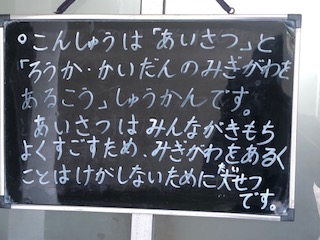 。こんしゅうは「あいさつ」と
「ろうか・かいだんのみぎがわを
あるこう」しゅうかんです。
あいさつはみんながきもち
よくすごすため、みぎがわをあるく
ことはけがしないために大せつ
だい
です。